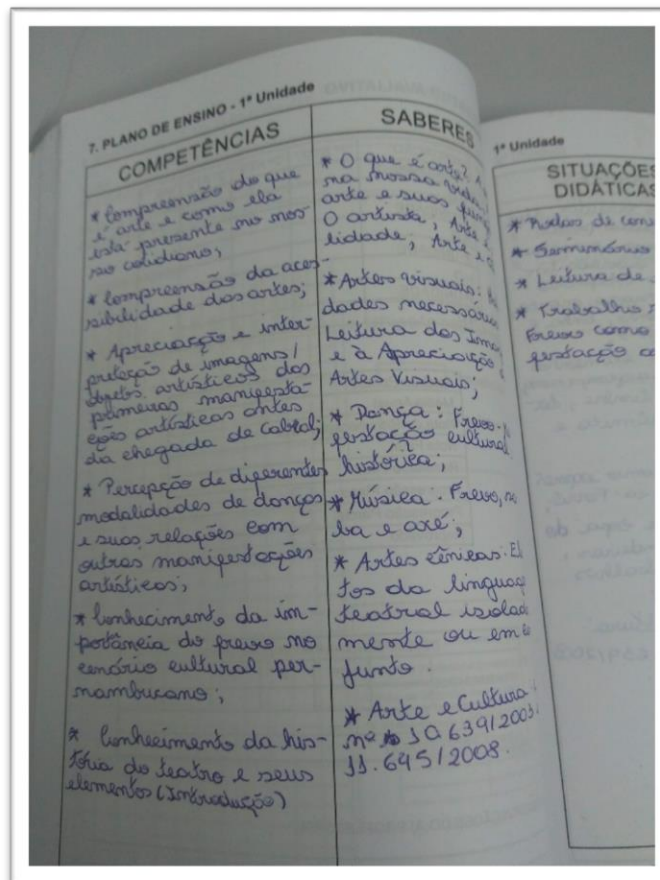 7. PLANO DE ENSINO - 1ª Unidade
COMPETÊNCIAS
* Compreensão do que
é arte e como ela
está presente no nos-
so cotidiano;
* Compreensão da aces-
sibilidade das artes;
* Apreciação e inter-
preteção de imagens/
objetos artísticos das
primeiras manifesta-
ções artísticas antes
da chegada de Cabral;
* Percepção de diferentes
modalidades de danças
e suas relações com
outras manifestações
artísticas;
* Conhecimento da im-
portância do frevo no
cenário cultural per-
nambucano;
* Conhecimento da his-
tória do teatro e seus
elementos (Introdução)
SABERES
* O que é arte? A
na nossa vida
arte e suas
O artista, Arte
lidade, Arte e
* Artes visuais:
dades necessári
Leitura das Ima
e à Apreciação
Artes Visuais;
* Dança: Frevo-
festação cultural
histórica;
* Música: Frevo,
ba e axé;
* Artes cênicas: El
tos da linguag
teatral isolad
mente ou em
junto.
* Arte e Cultura
nº 10.639/2003
11.645/2008.
1ª Unidade
SITUAÇÕES
DIDÁTICAS
* Rodas de
* Semminários
* Leitura de
* Trabalho
Frevo como
festação